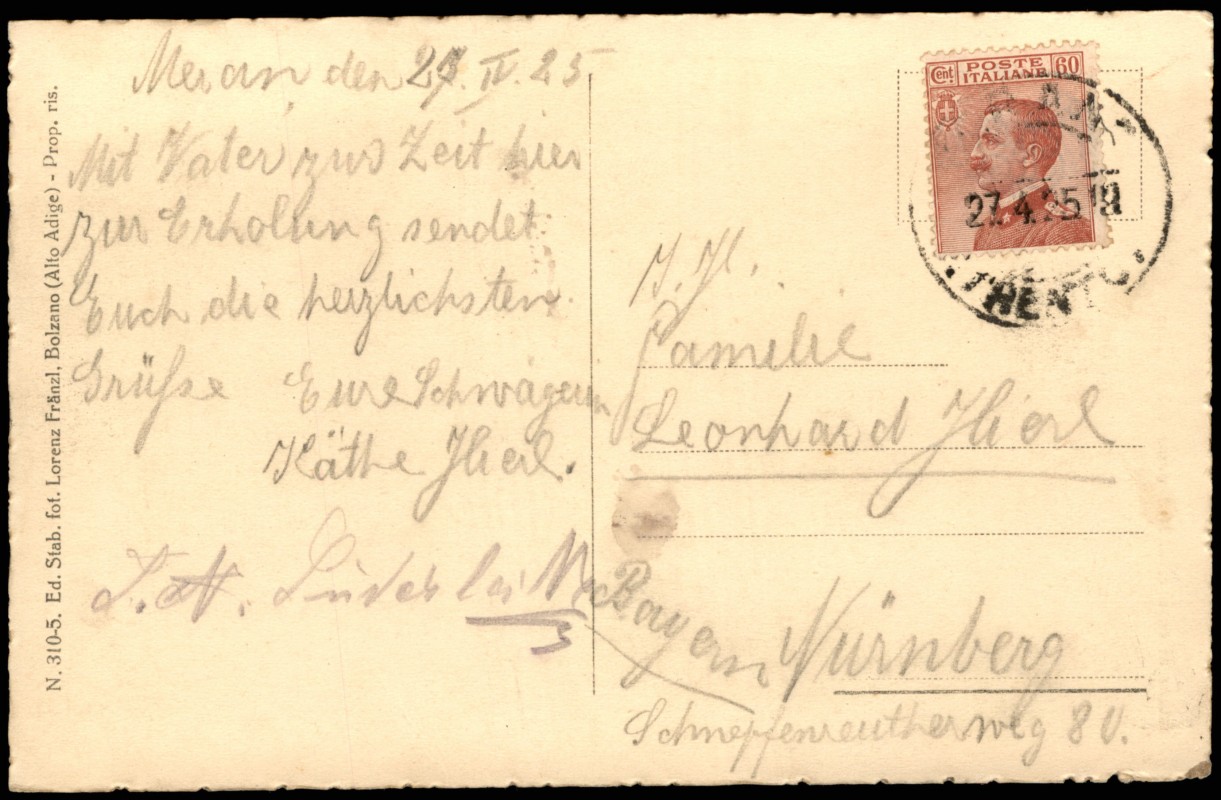 Meran den 27. IV. 25
Mit Vater zur Zeit hier
zur Erholung sendet
Euch die herzlichsten
Grüße Eure Schwägerin
Käthe Hierl.
N. 310-5. Ed. Stab. fot. Lorenz Fränzl, Bolzano (Alto Adige) - Prop. ris.
Cent. POSTE ITALIANE 60
27.4.25 18
TRENTO
Familie
Leonhard Hierl
Bayern Nürnberg
Schnepfenreutherweg 80.